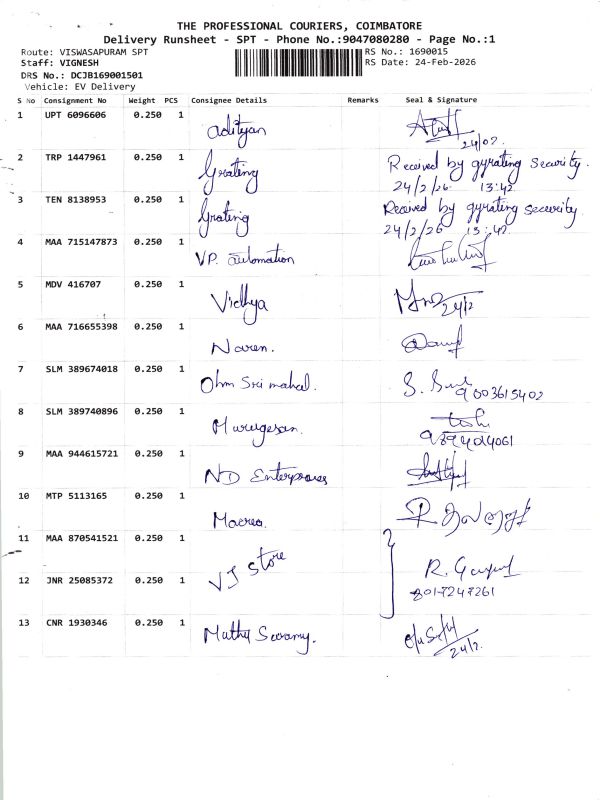 THE PROFESSIONAL COURIERS, COIMBATORE
Delivery Runsheet - SPT - Phone No.:9047080280 - Page No.:1
Route: VISWASAPURAM SPT
RS No.: 1690015
Staff: VIGNESH
RS Date: 24-Feb-2026
DRS No.: DCJB169001501
Vehicle: EV Delivery
S No Consignment No Weight PCS Consignee Details Remarks Seal & Signature
1 UPT 6096606 0.250 1 adityan
24/02.
2 TRP 1447961 0.250 1 Grating Received by gyrating security.
24/2/26 13:42
3 TEN 8138953 0.250 1 Grating Received by gyrating security.
24/2/26 13:42
4 MAA 715147873 0.250 1 VP. automation
5 MDV 416707 0.250 1 Vidhya
24/2
6 MAA 716655398 0.250 1 Naren.
7 SLM 389674018 0.250 1 Ohm Sri mahal.
9003615402
8 SLM 389740896 0.250 1 Murugesan.
9 MAA 944615721 0.250 1 ND Enterprises
10 MTP 5113165 0.250 1
11 MAA 870541521 0.250 1 VJ Store
12 JNR 25085372 0.250 1
8017247261
13 CNR 1930346 0.250 1 Mathy Swamy.
24/2.